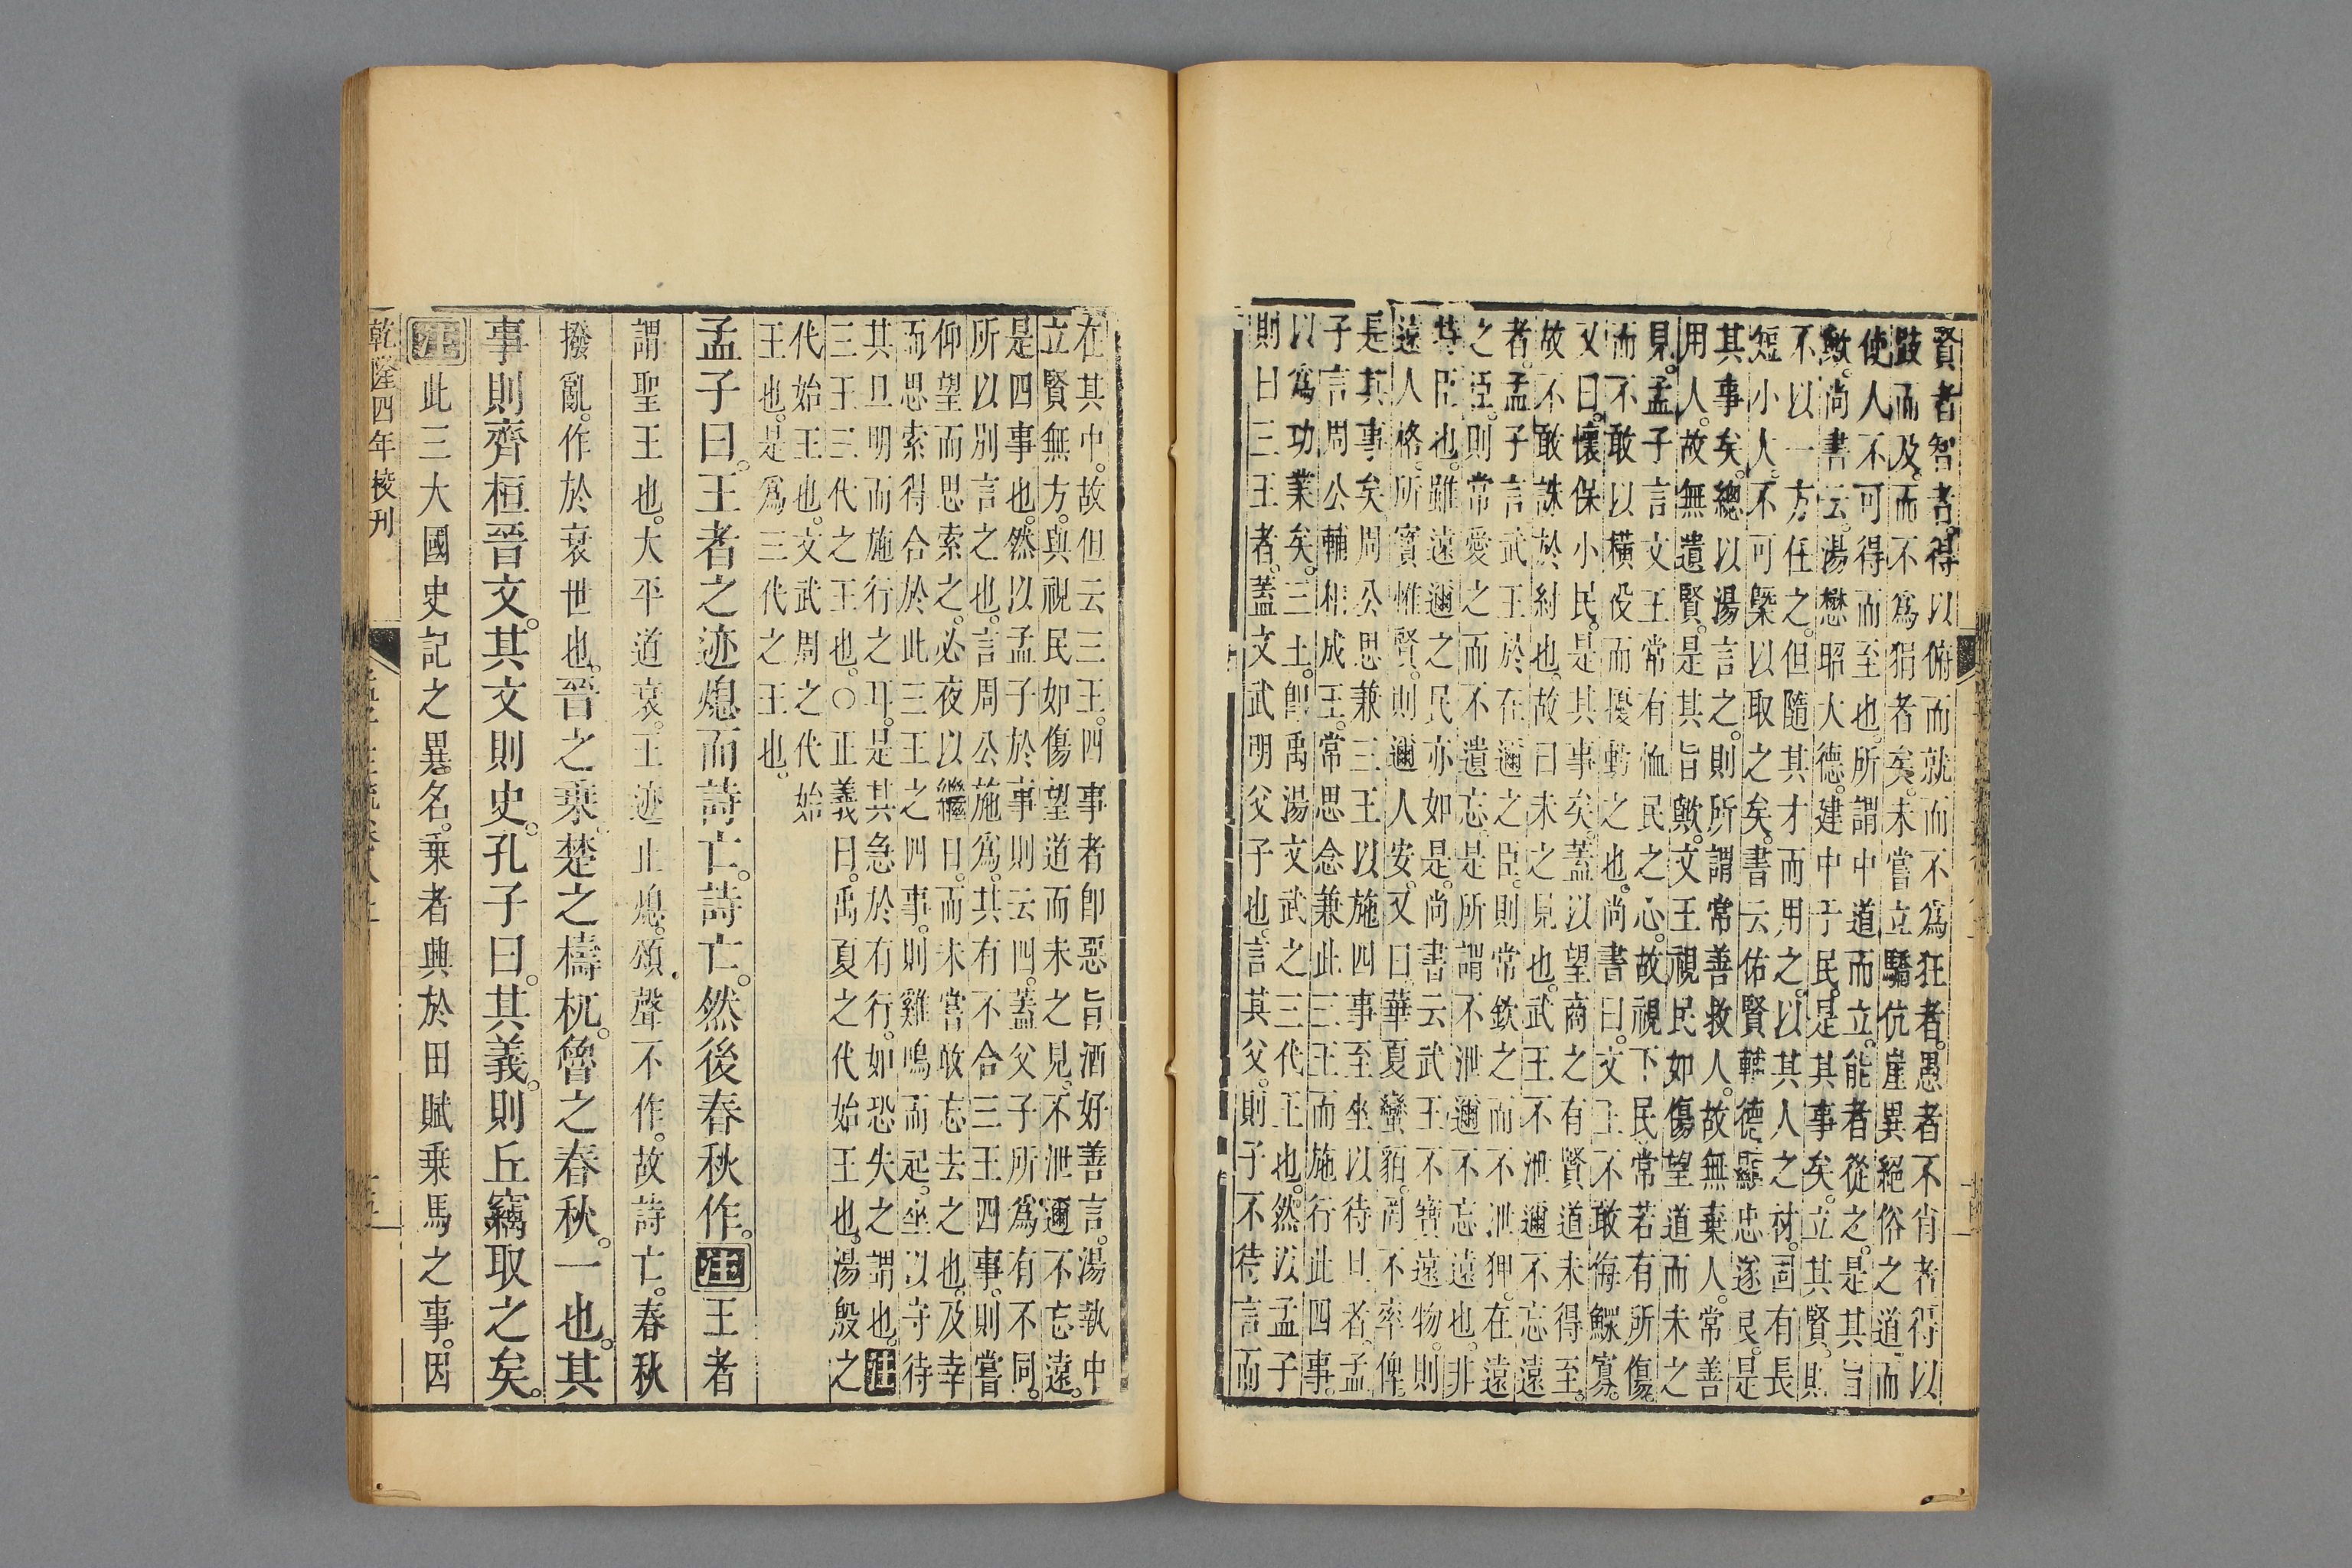 賢者智者得以俯而就而不為狂者愚者不肖者得以
跂而及而不為狷者矣未嘗立驕伉崖異絕俗之道而
使人不可得而至也所謂中道而立能者從之是其旨
歟尚書云湯懋昭大德建中于民是其事矣立其賢則
不以一方任之但隨其才而用之以其人之材固有長
短小人不可槩以取之矣書云佑賢輔德顯忠遂良是
其事矣總以湯言之則所謂常善救人故無棄人常善
用人故無遺賢是其旨歟文王視民如傷望道而未之
見孟子言文王常有恤民之心故視下民常若有所傷
而不敢以橫役而擾動之也尚書曰文王不敢侮鰥寡
又曰懷保小民是其事矣蓋以望商之有賢道未得至
故不敢誅於紂也故曰未之見也武王不泄邇不忘遠
者孟子言武王於在邇之臣則常欽之而不泄狎在遠
之臣則常愛之而不遺忘是所謂不泄邇不忘遠也非
特臣也雖遠邇之民亦如是尚書云武王不寶遠物則
遠人格所寶惟賢則邇人安又曰華夏蠻貊罔不率俾
是其事矣周公思兼三王以施四事至坐以待旦者孟
子言周公輔相成王常思念兼此三王而施行此四事
以為功業矣三王即禹湯文武之三代王也然汲孟子
則曰三王者蓋文武明父子也言其父則子不待言而
在其中故但云三王四事者即惡旨酒好善言湯執中
立賢無方與視民如傷望道而未之見不泄邇不忘遠
是四事也然以孟子於事則云四蓋父子所為有不同
所以別言之也言周公施為其有不合三王四事則嘗
仰望而思索之必夜以繼日而未嘗敢忘去之也及幸
而思索得合於此三王之四事則雞鳴而起坐以守待
其旦明而施行之耳是其急於有行如恐失之謂也注
三王三代之王也○正義曰禹夏之代始王也湯殷之
代始王也文武周之代始
王也是為三代之王也
孟子曰王者之迹熄而詩亡詩亡然後春秋作注王者
謂聖王也大平道衰王迹止熄頌聲不作故詩亡春秋
撥亂作於衰世也晉之乘楚之檮杌魯之春秋一也其
事則齊桓晉文其文則史孔子曰其義則丘竊取之矣
注此三大國史記之異名乘者興於田賦乘馬之事因
乾隆四年校刊